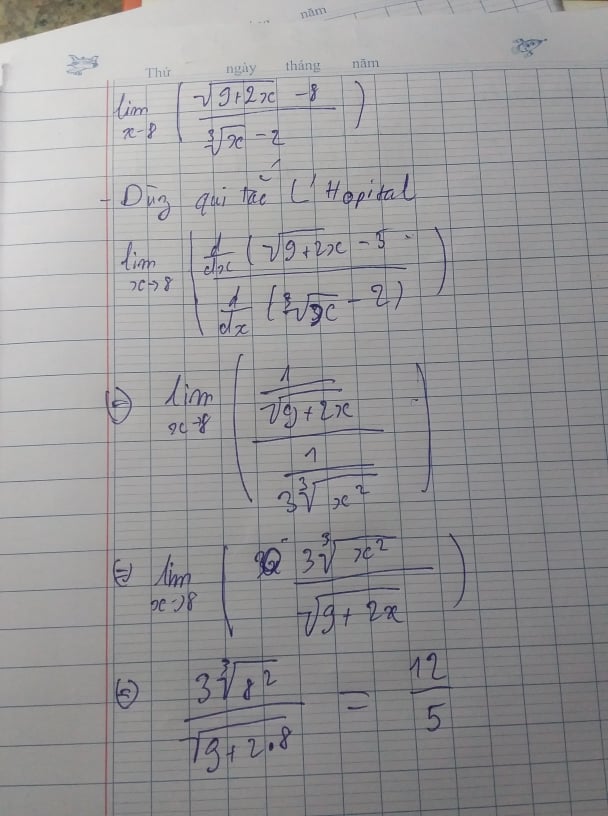 năm
Thứ ngày tháng năm
lim x-8 ( (√(9+2x) -8) / (∛x -2) )
- Dùg qui tắc L' Hopital
lim x→8 ( d/dx (√(9+2x) - 5 / d/dx (∛x - 2) )
(=) lim x→8 ( (1/√(9+2x)) / (1/(3∛x²)) )
(=) lim x→8 ( 3∛x² / √(9+2x) )
(=) 3∛8² / √(9+2.8) = 12/5